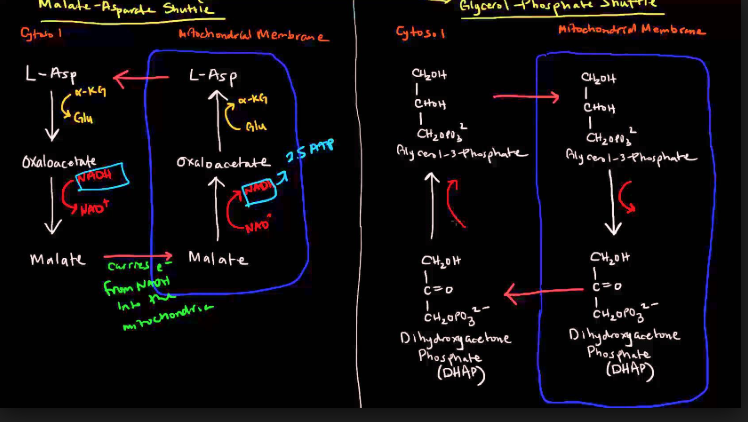 Malate-Aspartate Shuttle
Cytosol
Mitochondrial Membrane
L-Asp
L-Asp
α-KG
Glu
α-KG
Glu
Oxaloacetate
Oxaloacetate
2.5 ATP
NADH
NAD+
NADH
NAD+
Malate
Malate
carries e-
from NADH
into the
mitochondria
Glycerol-Phosphate Shuttle
Cytosol
Mitochondrial Membrane
CH₂OH
CHOH
CH₂OPO₃²
Glycerol-3-Phosphate
CH₂OH
CHOH
CH₂OPO₃²
Glycerol-3-Phosphate
CH₂OH
C=O
CH₂OPO₃²⁻
Dihydroxyacetone
Phosphate
(DHAP)
CH₂OH
C=O
CH₂OPO₃²⁻
Dihydroxyacetone
Phosphate
(DHAP)